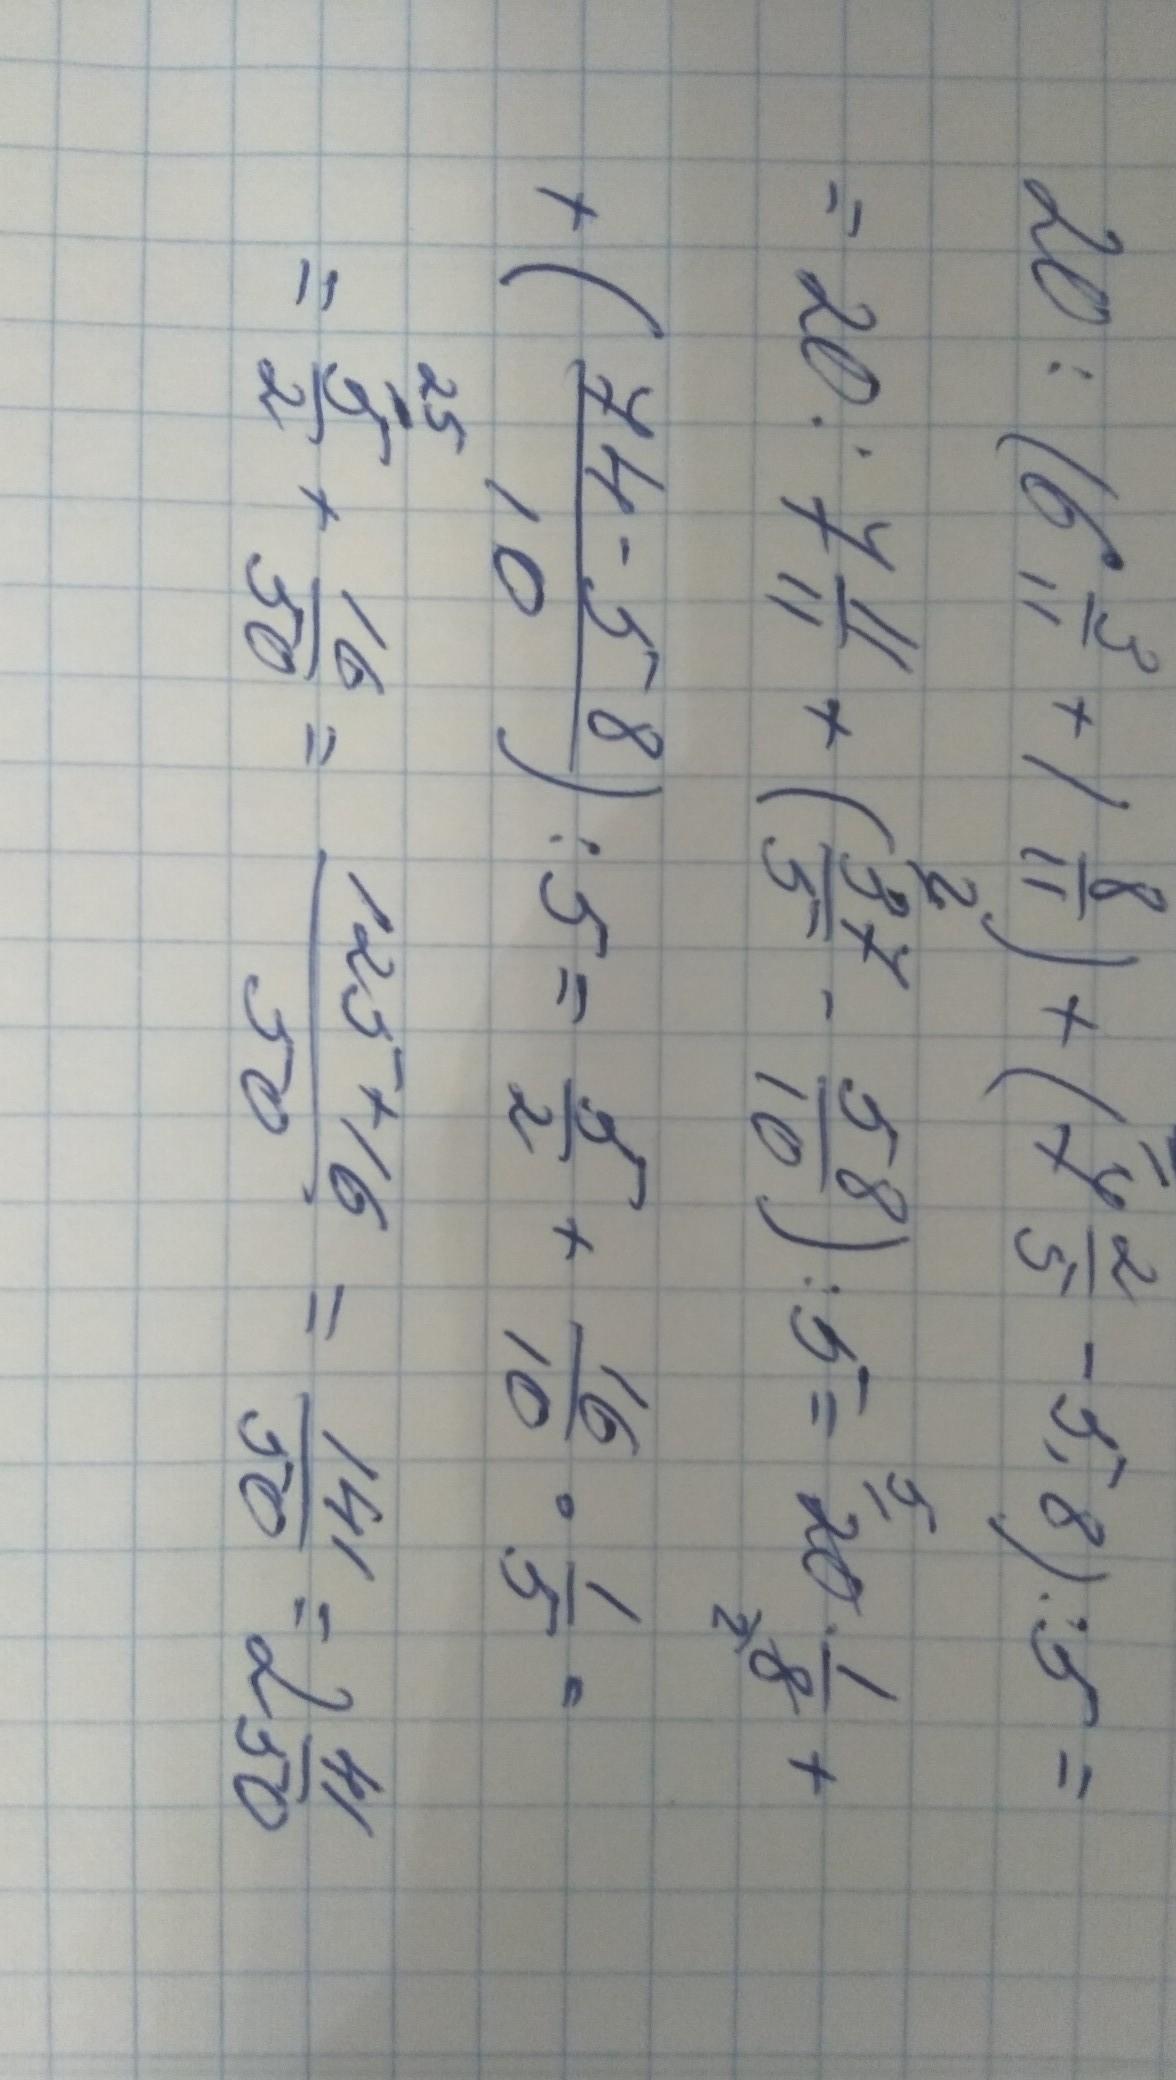 20 : (6 3/11 + 1 8/11) + (7 2/5 - 5,8) : 5 =
= 20 : 7 11/11 + (37/5 - 58/10) : 5 = 20 · 1/8 +
+ (74-58/10) : 5 = 5/2 + 16/10 · 1/5 =
= 5/2 + 16/50 = 125+16/50 = 141/50 = 2 41/50